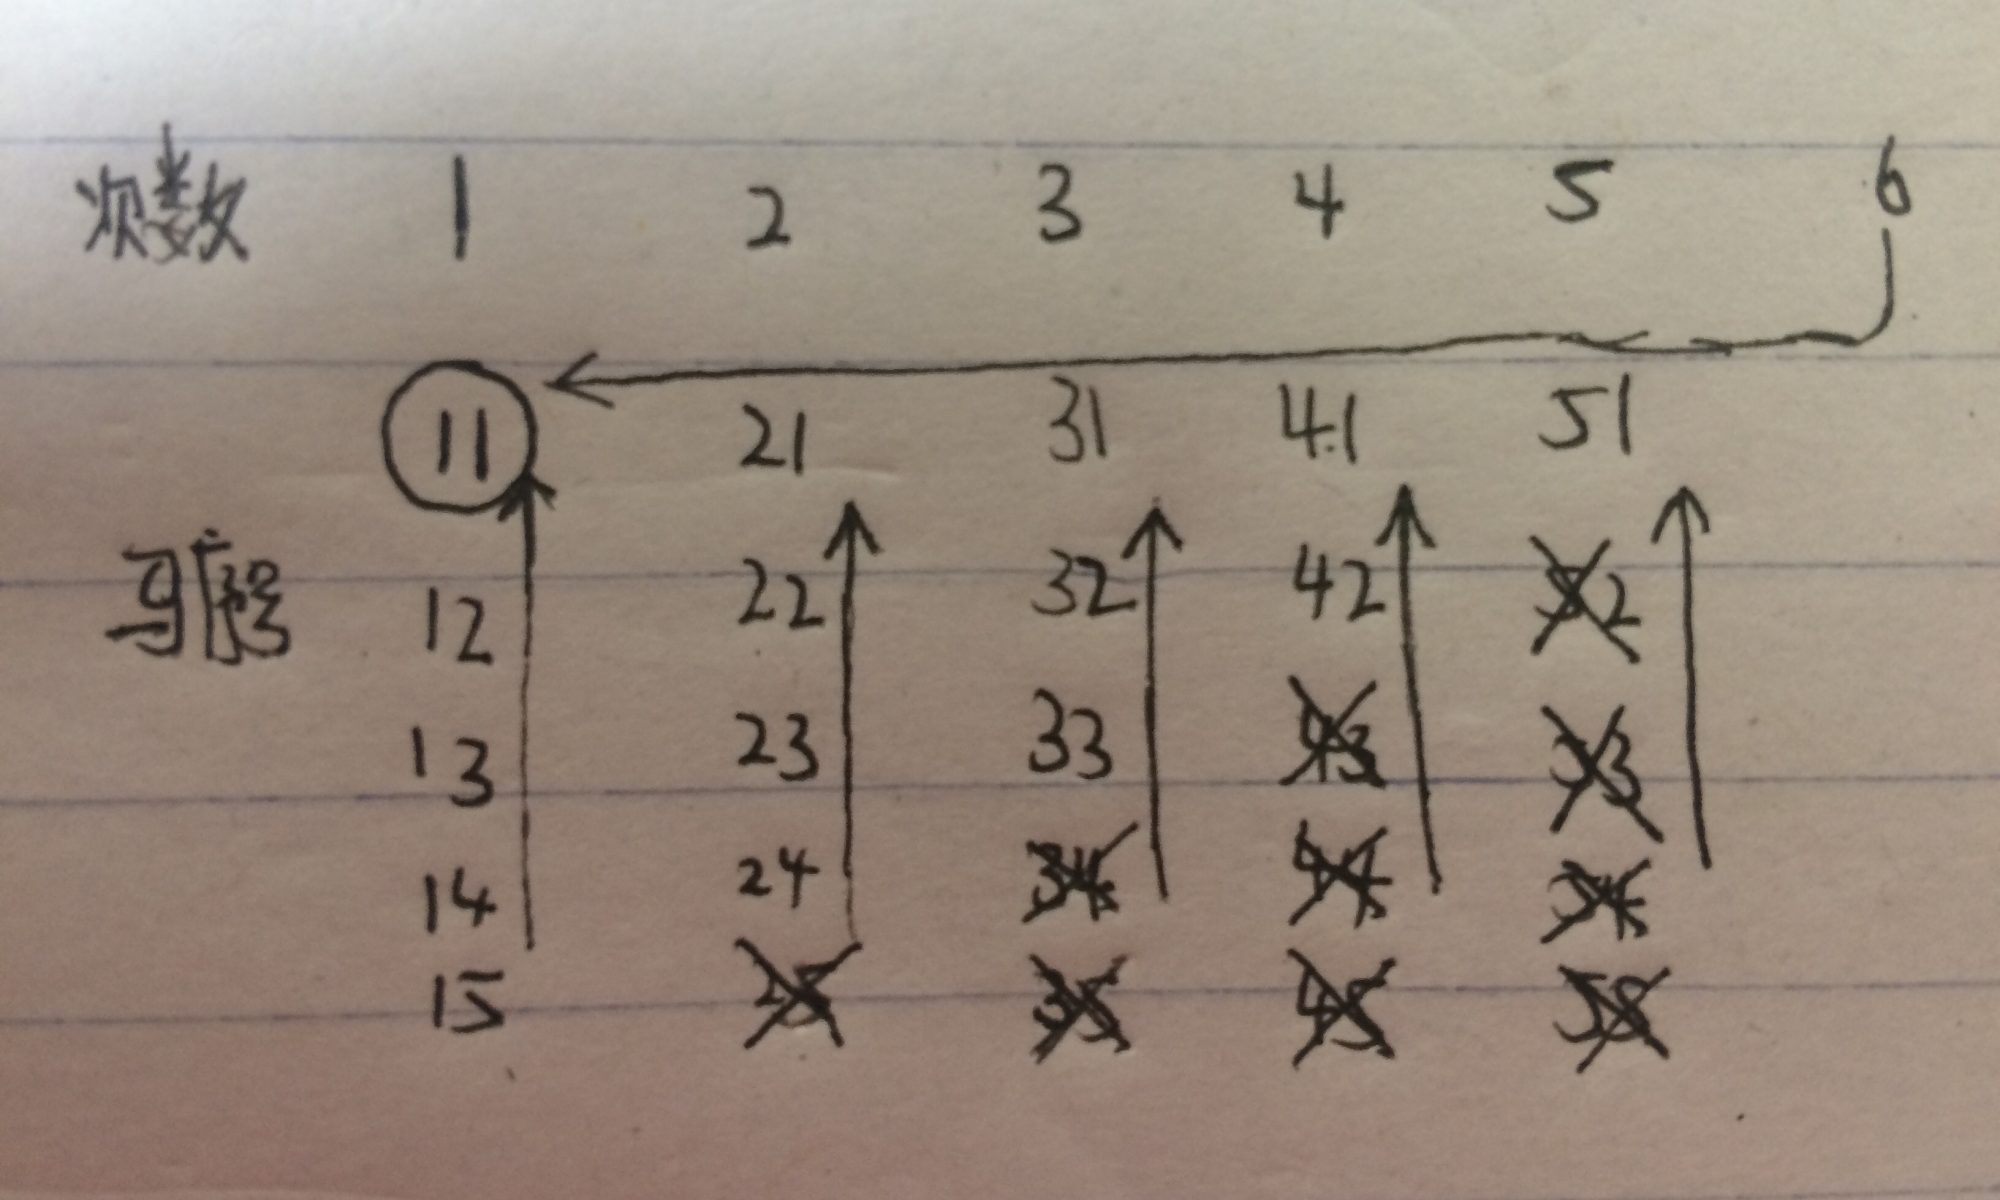 次数 1 2 3 4 5 6
11 21 31 41 51
马 12 22 32 42 52
13 23 33 43 53
14 24 34 44 54
15 25 35 45 55